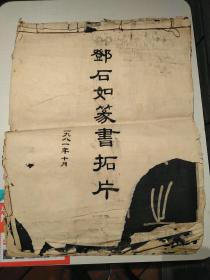 鄧石如篆書拓片
一九八一年十月